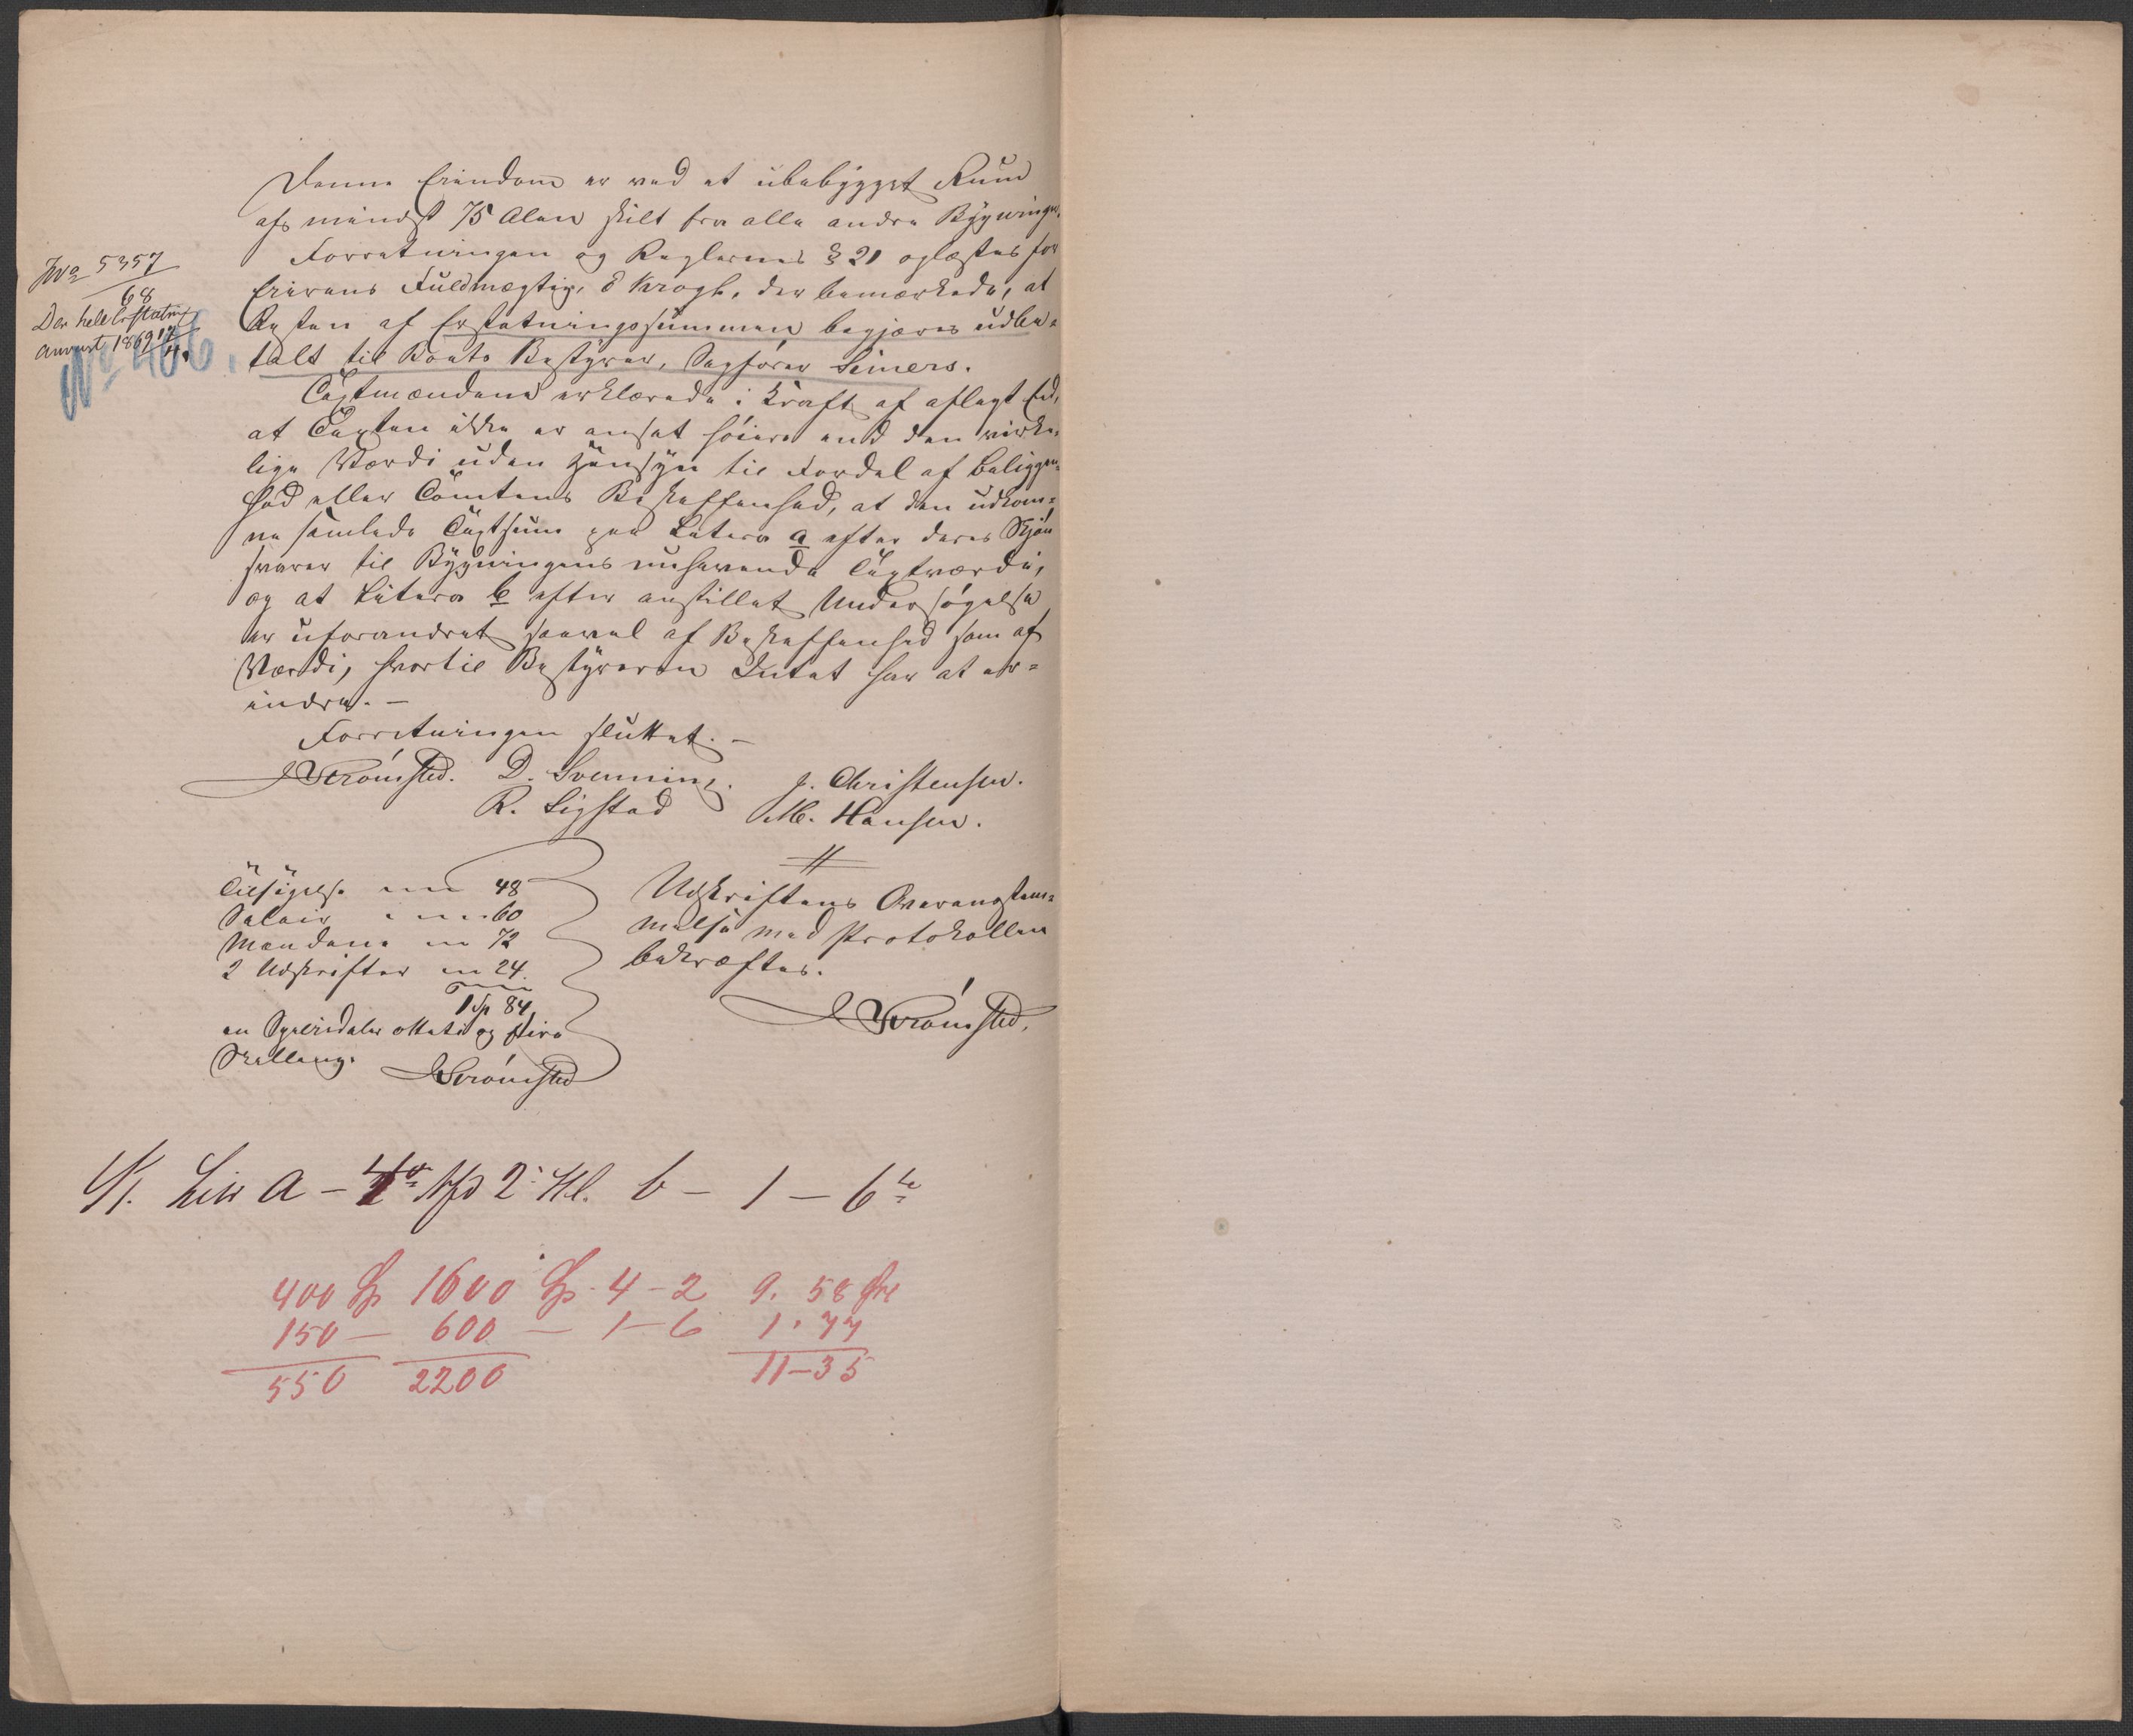 Denne Eiendom er ved et ubebygget Rum
af mindst 75 Alen skilt fra alle andre Bygninger.
Forretningen og Reglernes § 21 oplæstes for
Eierens Fuldmægtig, E Krogh, der bemærkede, at
Resten af Erstatningssummen begjæres udbe-
talt til Boets Bestyrer, Sagfører Simers.
Taxtmændene erklærede i Kraft af aflagt Ed,
at Taxten ikke er ansat høiere end den virke-
lige Værdi uden Hensyn til Fordel af Beliggen-
hed eller Tomtens Beskaffenhed, at den udkom-
ne samlede Taxtsum paa Litera a efter deres Skjøn
svarer til Bygningens nuhavende Taxtværdi,
og at Litera b efter anstillet Undersøgelse
er uforandret saavel af Beskaffenhed som af
Værdi, hvortil Bestyreren Intet har at er-
indre. -
Forretningen sluttet. -
J Strömsted. D. Svenning. J. Christensen.
R. Sigstad M. Hansen.
No 5357
68
Den hele Erstatning
anvist 1869 17/4.
No 466.
Tilsigelse 48
Salair 60
Mændene 72
2 Udskrifter 24.
1 Sp 84
en Speciedaler otteti og fire
Skilling.
J Strömsted
Udskriftens Overensstem-
melse med Protokollen
bekræftes.
J Strömsted.
Litr a - 4de 2 Kl. b - 1 - 6te
400 Sp 1600 4 - 2 9. 58 Øre
150 - 600 - 1 - 6 1. 77
550 2200 11 - 35